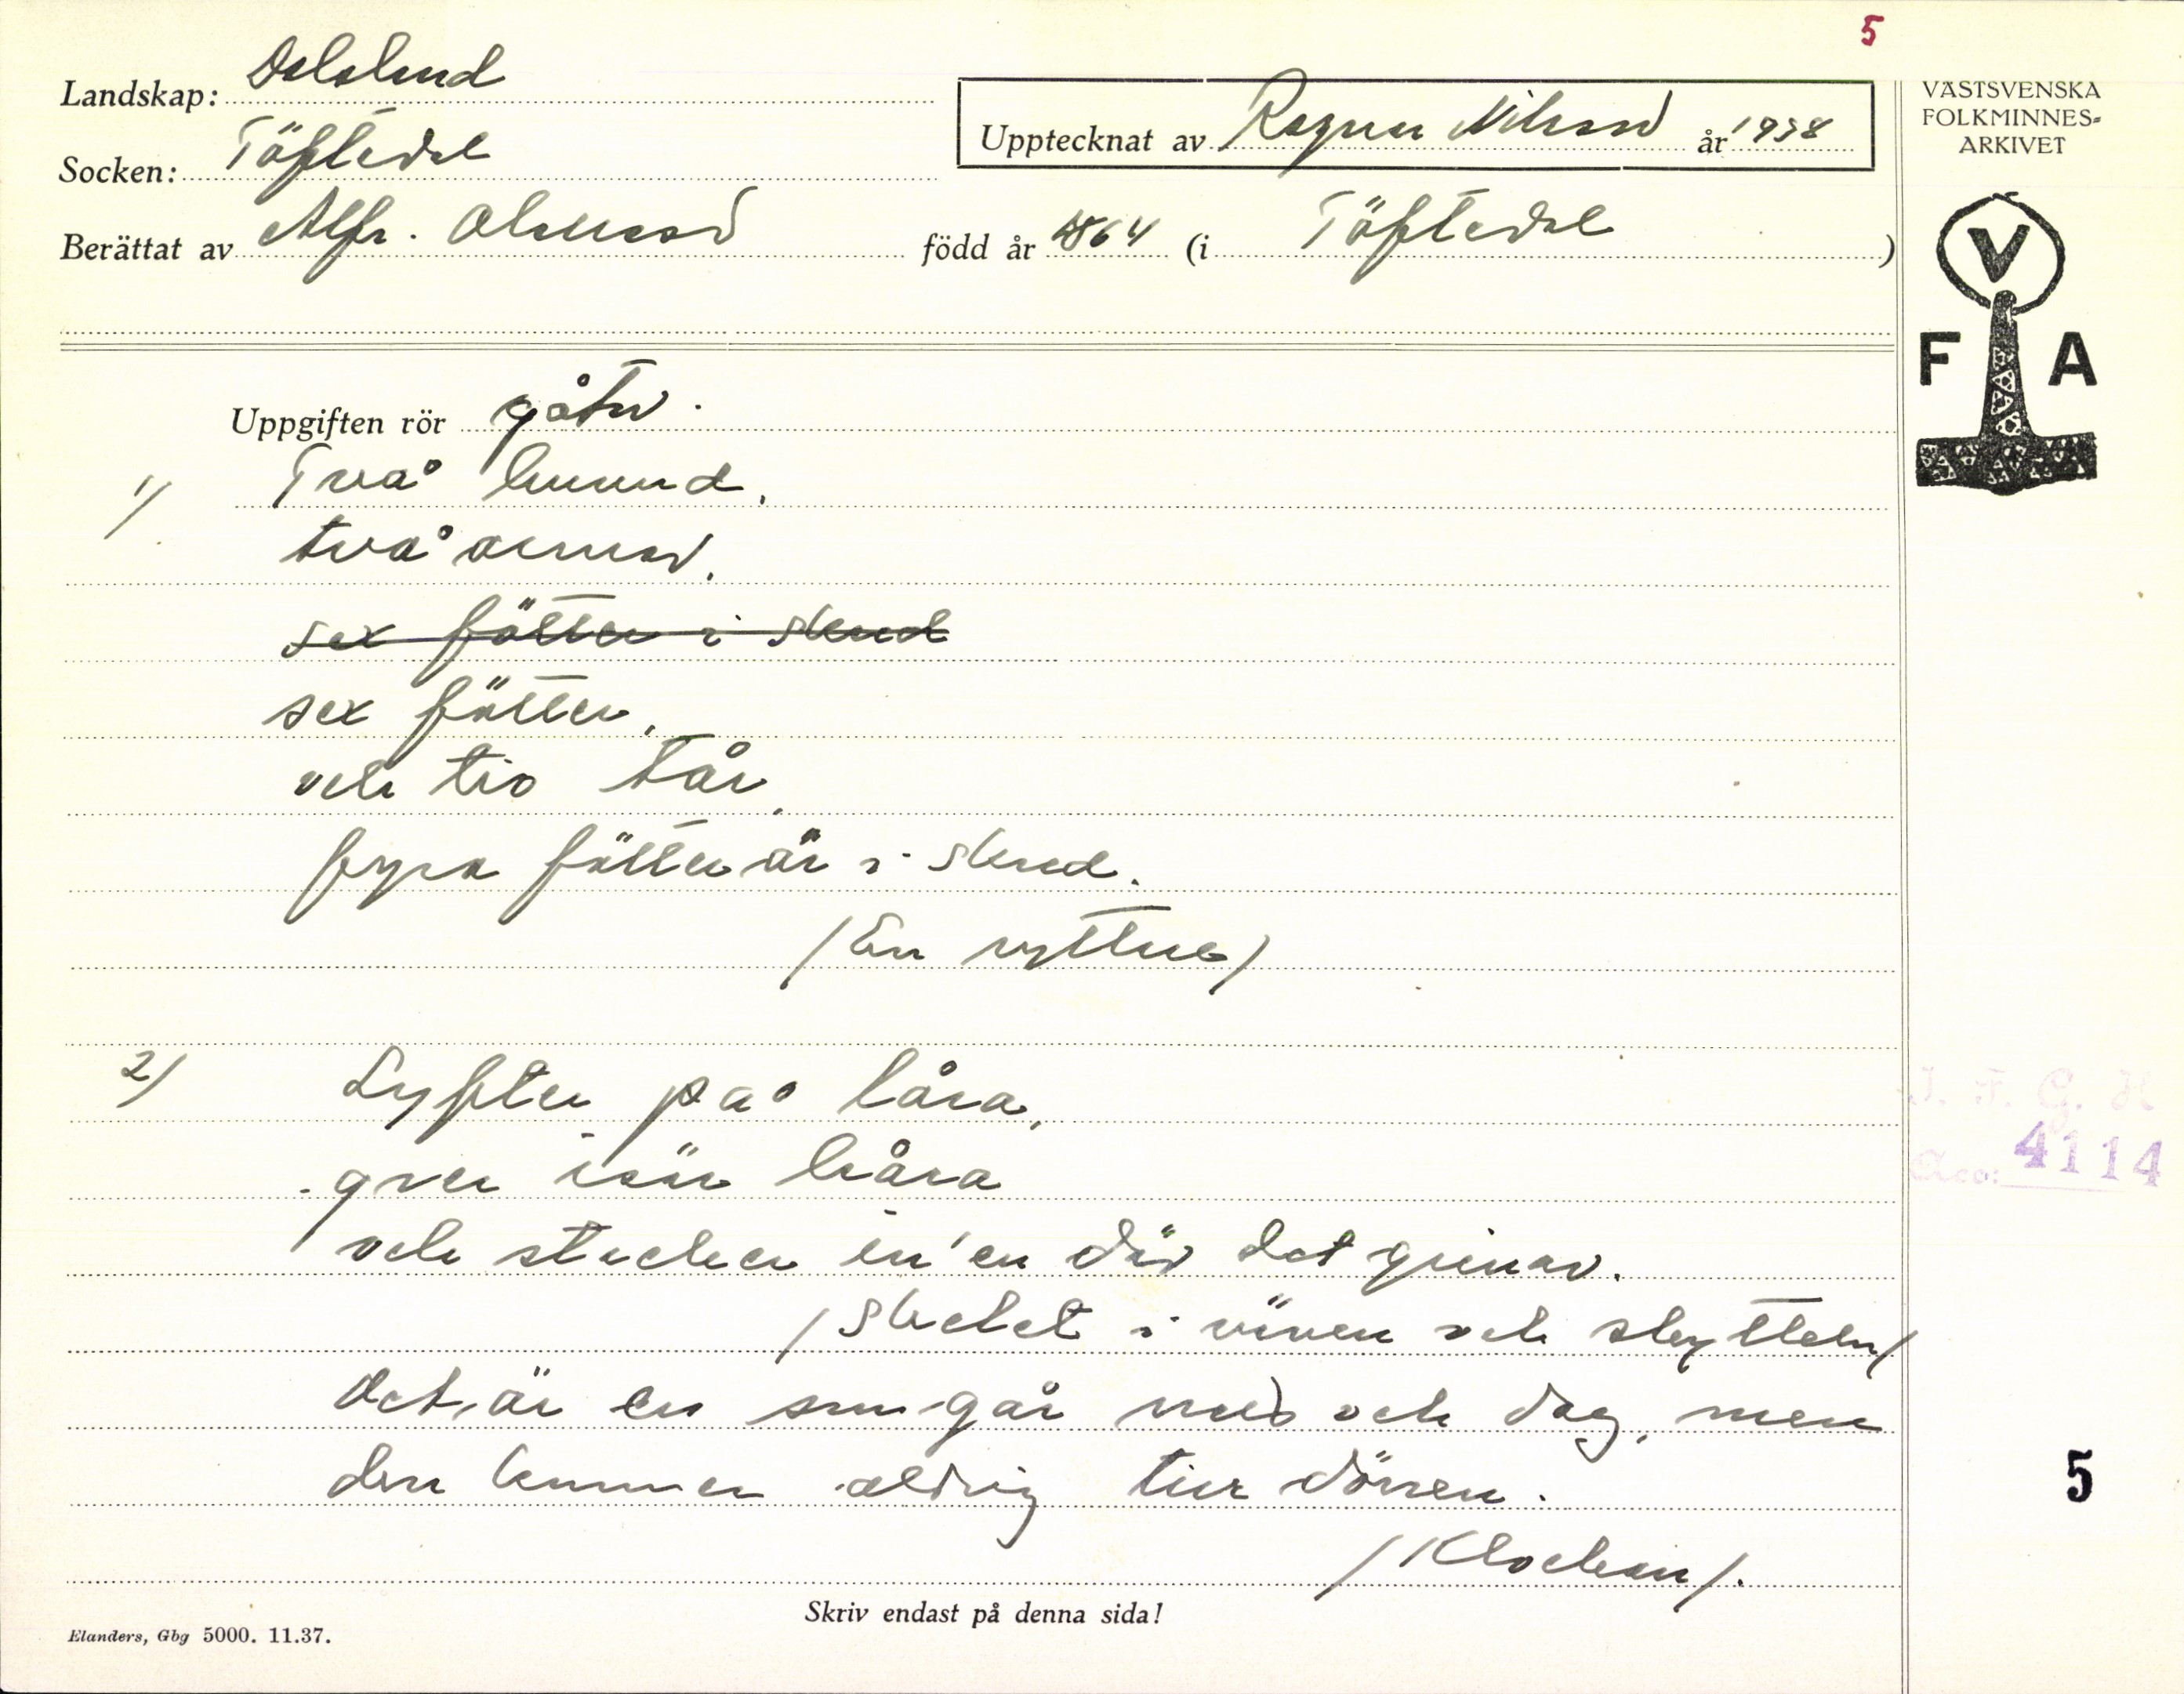 5
Landskap: Dalsland
Upptecknat av Ragnar Nilsson år 1938
VÄSTSVENSKA
FOLKMINNES-
ARKIVET
Socken: Töftedal
Berättat av Alfr. Olausson född år 1864 (i Töftedal)
V
F A
Uppgiften rör gåtor.
1/ Två huvud,
två armar,
sex fötter i skred
sex fötter,
och tio tår,
fyra fötter är i skred.
/En ryttare/
2/ Lyfter på låra,
grer isär håra
och sticker in'en där det grinar.
/Skelet i väven och skytteln/
Det är en som går natt och dag, men
den kommer aldrig till dörren.
/Klockan/.
I. F. G. H
Acc: 4114
5
Skriv endast på denna sida!
Elanders, Gbg 5000. 11.37.